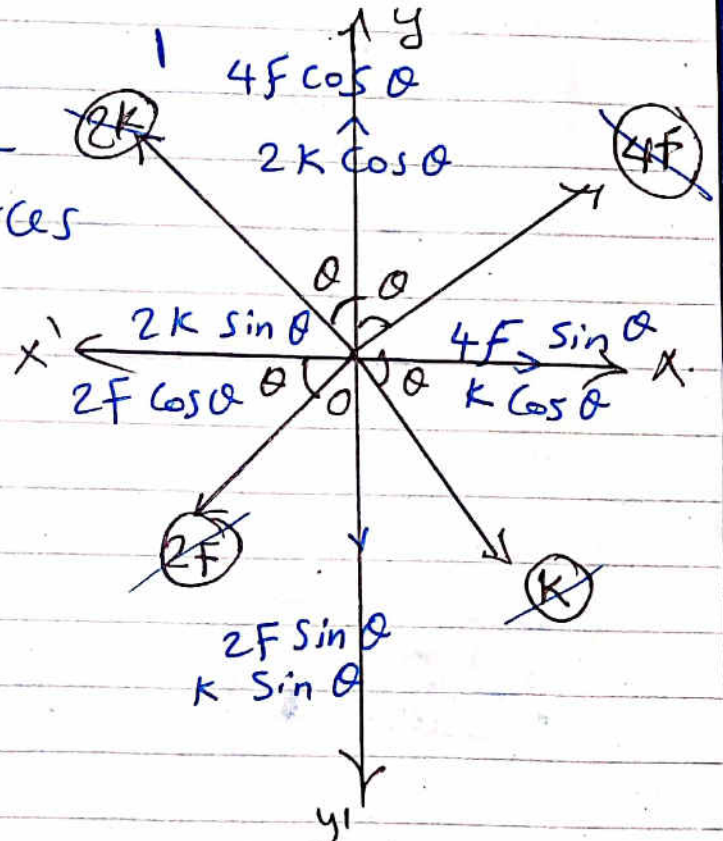 y
4F cos θ
2K
4F
2K cos θ
ces
θ θ
2K sin θ
4F sin θ
X'
X
2F cos θ
θ
O
θ
K cos θ
2F
K
2F sin θ
K sin θ
y'